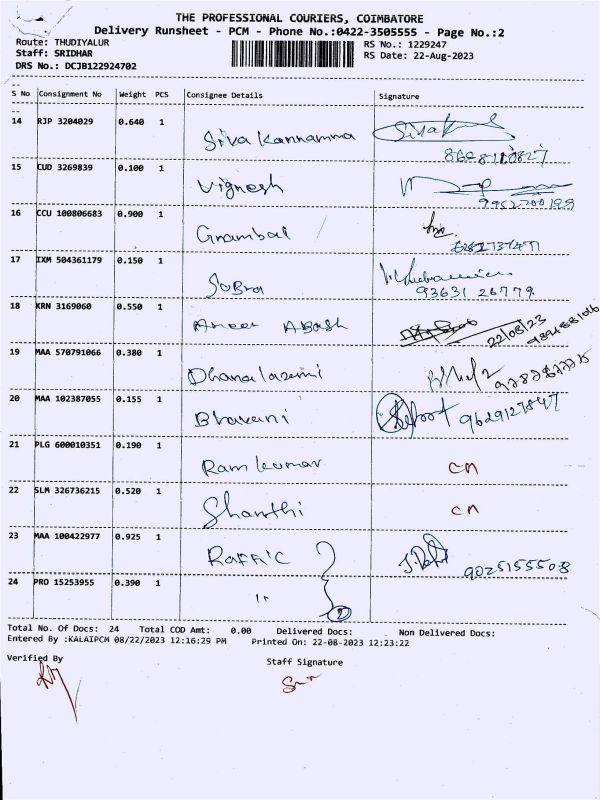 THE PROFESSIONAL COURIERS, COIMBATORE
Delivery Runsheet - PCM - Phone No.:0422-3505555 - Page No.:2
Route: THUDIYALUR RS No.: 1229247
Staff: SRIDHAR RS Date: 22-Aug-2023
DRS No.: DCJB122924702
S No Consignment No Weight PCS Consignee Details Signature
14 RJP 3204029 0.640 1 Siva Kannamma
15 CUD 3269839 0.100 1 Vignesh
16 CCU 100806683 0.900 1
17 IXM 504361179 0.150 1 93631 26779
18 KRN 3169060 0.550 1 22/08/23
19 MAA 570791066 0.380 1
20 MAA 102387055 0.155 1 Bhavani 9629127847
21 PLG 600010351 0.190 1 Ram kumar
22 SLM 326736215 0.520 1 Shanthi
23 MAA 100422977 0.925 1 RAFFIC 9025155508
24 PRO 15253955 0.390 1 " 2
Total No. Of Docs: 24 Total COD Amt: 0.00 Delivered Docs: Non Delivered Docs:
Entered By :KALAIPCM 08/22/2023 12:16:29 PM Printed On: 22-08-2023 12:23:22
Verified By Staff Signature